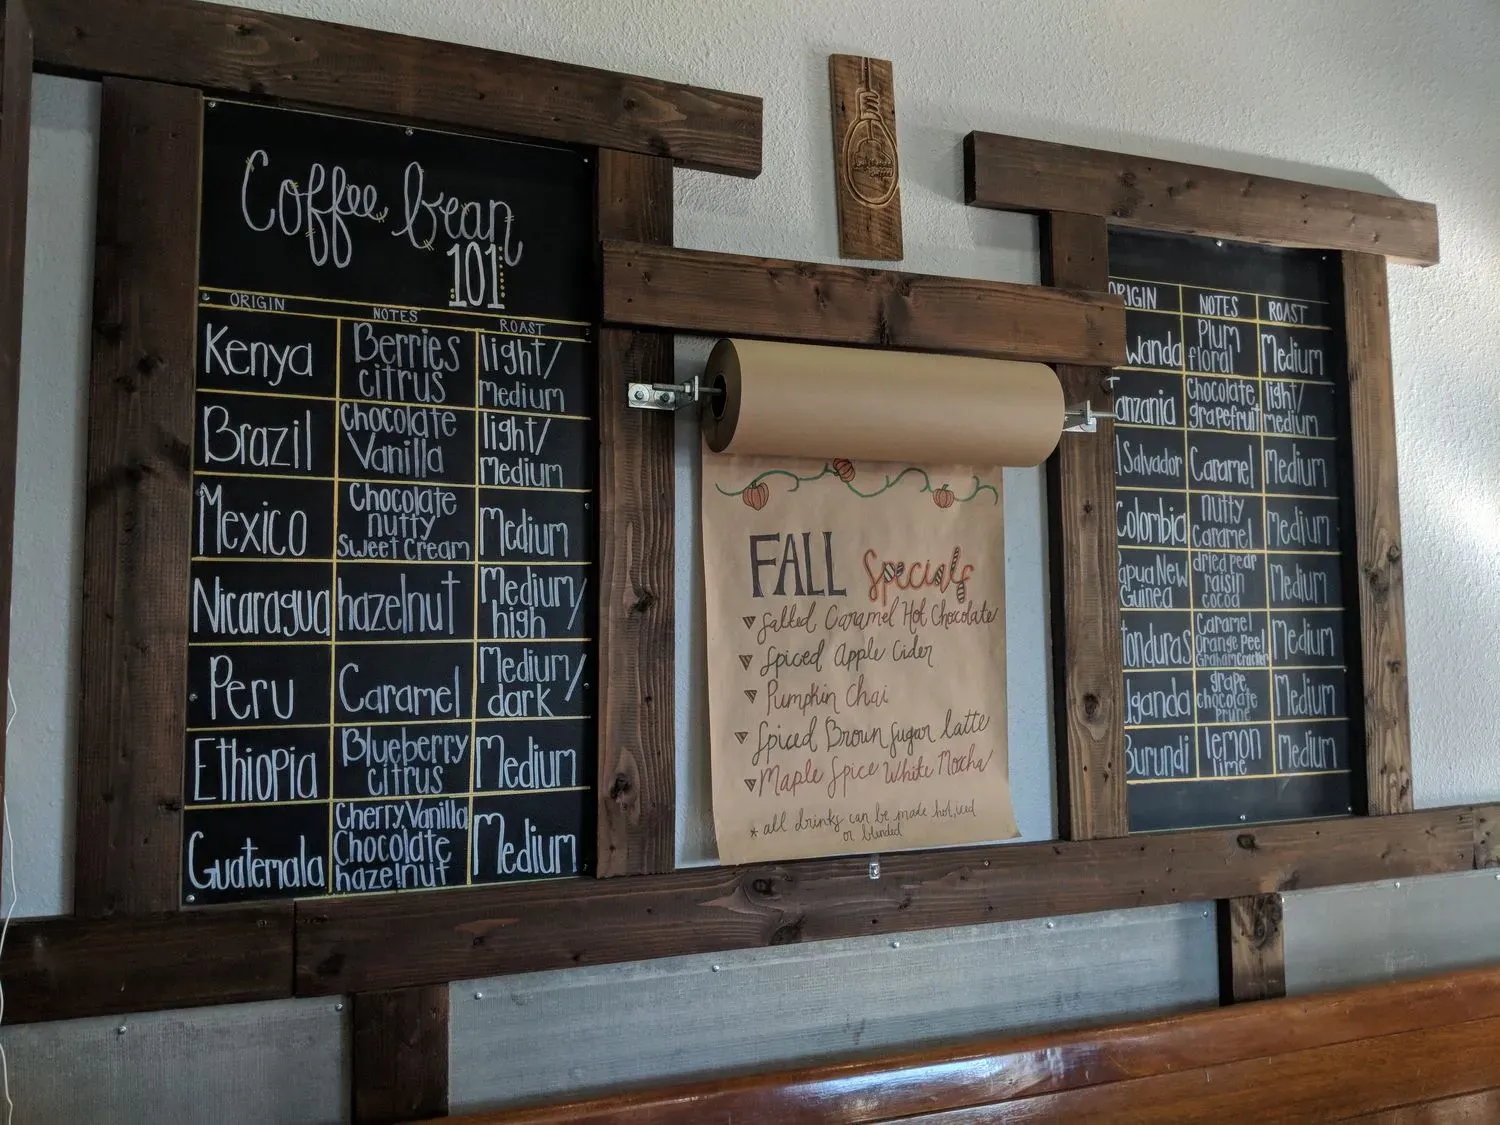 Coffee bean
101
ORIGIN NOTES ROAST
Kenya Berries citrus light/Medium
Brazil Chocolate Vanilla light/Medium
Mexico Chocolate nutty Sweet Cream Medium
Nicaragua hazelnut Medium/high
Peru Caramel Medium/dark
Ethiopia Blueberry citrus Medium
Guatemala Cherry, Vanilla Chocolate hazelnut Medium
Coffee
FALL Specials
Salted Caramel Hot Chocolate
Spiced Apple Cider
Pumpkin Chai
Spiced Brown Sugar latte
Maple Spice White Mocha
* all drinks can be made hot, iced
or blended
ORIGIN NOTES ROAST
wanda Plum floral Medium
anzania Chocolate grapefruit light/medium
l Salvador Caramel Medium
Colombia nutty Caramel Medium
apua New Guinea dried pear raisin cocoa Medium
onduras Caramel Orange Peel Graham Cracker Medium
ganda grape chocolate Prune Medium
Burundi lemon lime Medium